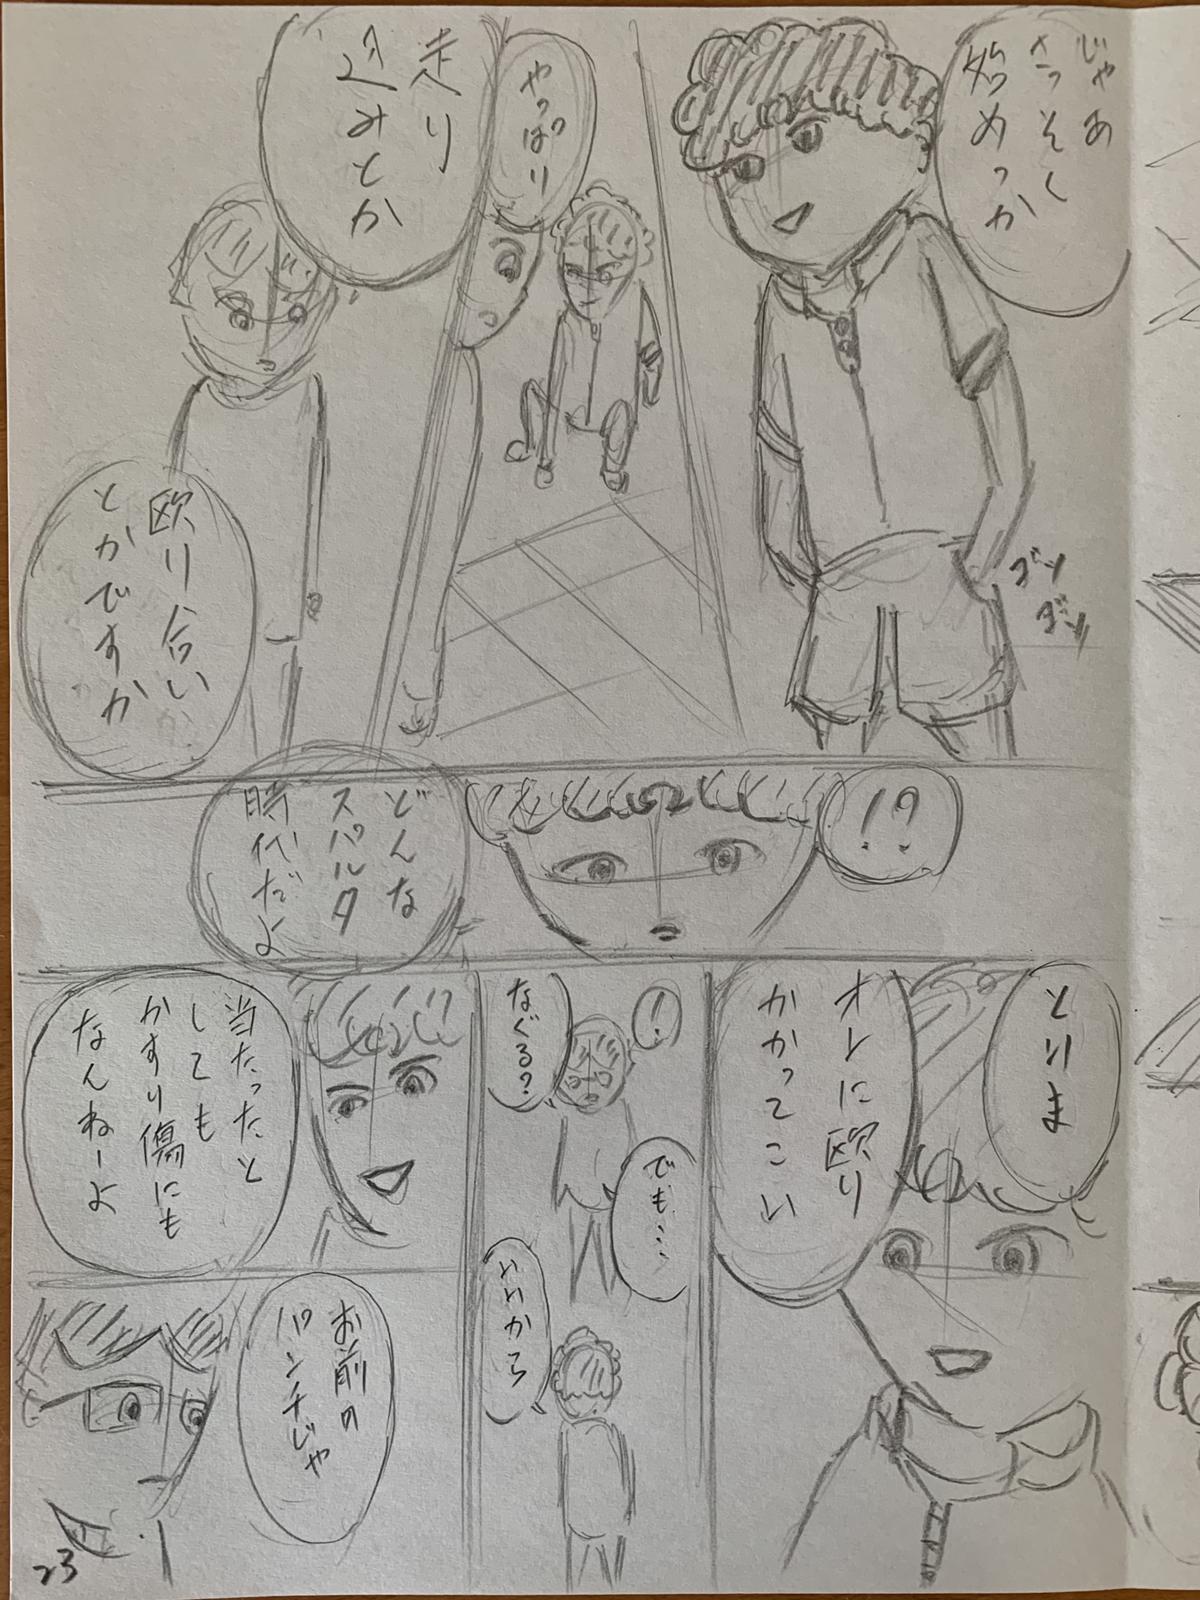 じゃあ
さっそく
始めっか
やっぱり
走り
込みとか
殴り合い
とかですか
ゴソ
ゴソ
!?
どんな
スパルタ
時代だよ
とりま
オレに殴り
かかってこい
!
なぐる?
でも……
いいから
当たったと
しても
かすり傷にも
なんねーよ
お前の
パンチじゃ
23